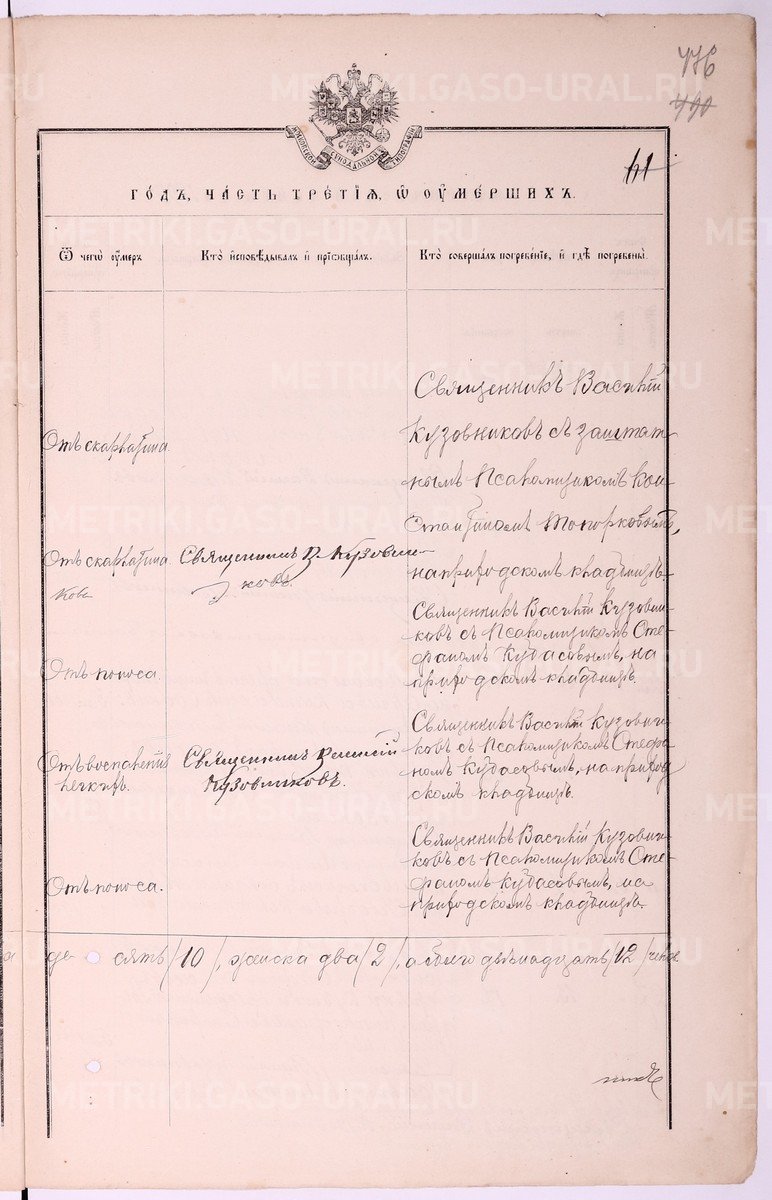 METRIKI.GASO-URAL.RU
476
490
МОСКОВСКОЙ СѴНОДАЛЬНОЙ ТИПОГРАФІИ
61
ГОДЪ, ЧАСТЬ ТРЕТІЯ, Ѿ ОУМЕРШИХЪ.
Ѿ чегѡ оумеръ
Кто исповѣдывалъ и пріобщалъ.
Кто совершалъ погребеніе, и гдѣ погребены.
Отъ скарлатина.
Священникъ Василій
Кузовниковъ съ заштат-
нымъ Псаломщикомъ Кон-
стантиномъ Топорковымъ,
на приходскомъ кладбищѣ.
Отъ скарлатина
Священникъ В. Кузовни-
ковъ.
Отъ поноса.
Священникъ Василій Кузовни-
ковъ съ Псаломщикомъ Сте-
фаномъ Кудасовымъ, на
приходскомъ кладбищѣ.
Отъ воспаленія
легкихъ.
Священникъ Василій
Кузовниковъ.
Священникъ Василій Кузовни-
ковъ съ Псаломщикомъ Стефа-
номъ Кудасовымъ, на приход-
скомъ кладбищѣ.
Отъ поноса.
Священникъ Василій Кузовни-
ковъ съ Псаломщикомъ Сте-
фаномъ Кудасовымъ, на
приходскомъ кладбищѣ.
де сять /10/, женска два /2/, а обоего двѣнадцать /12/ челов.